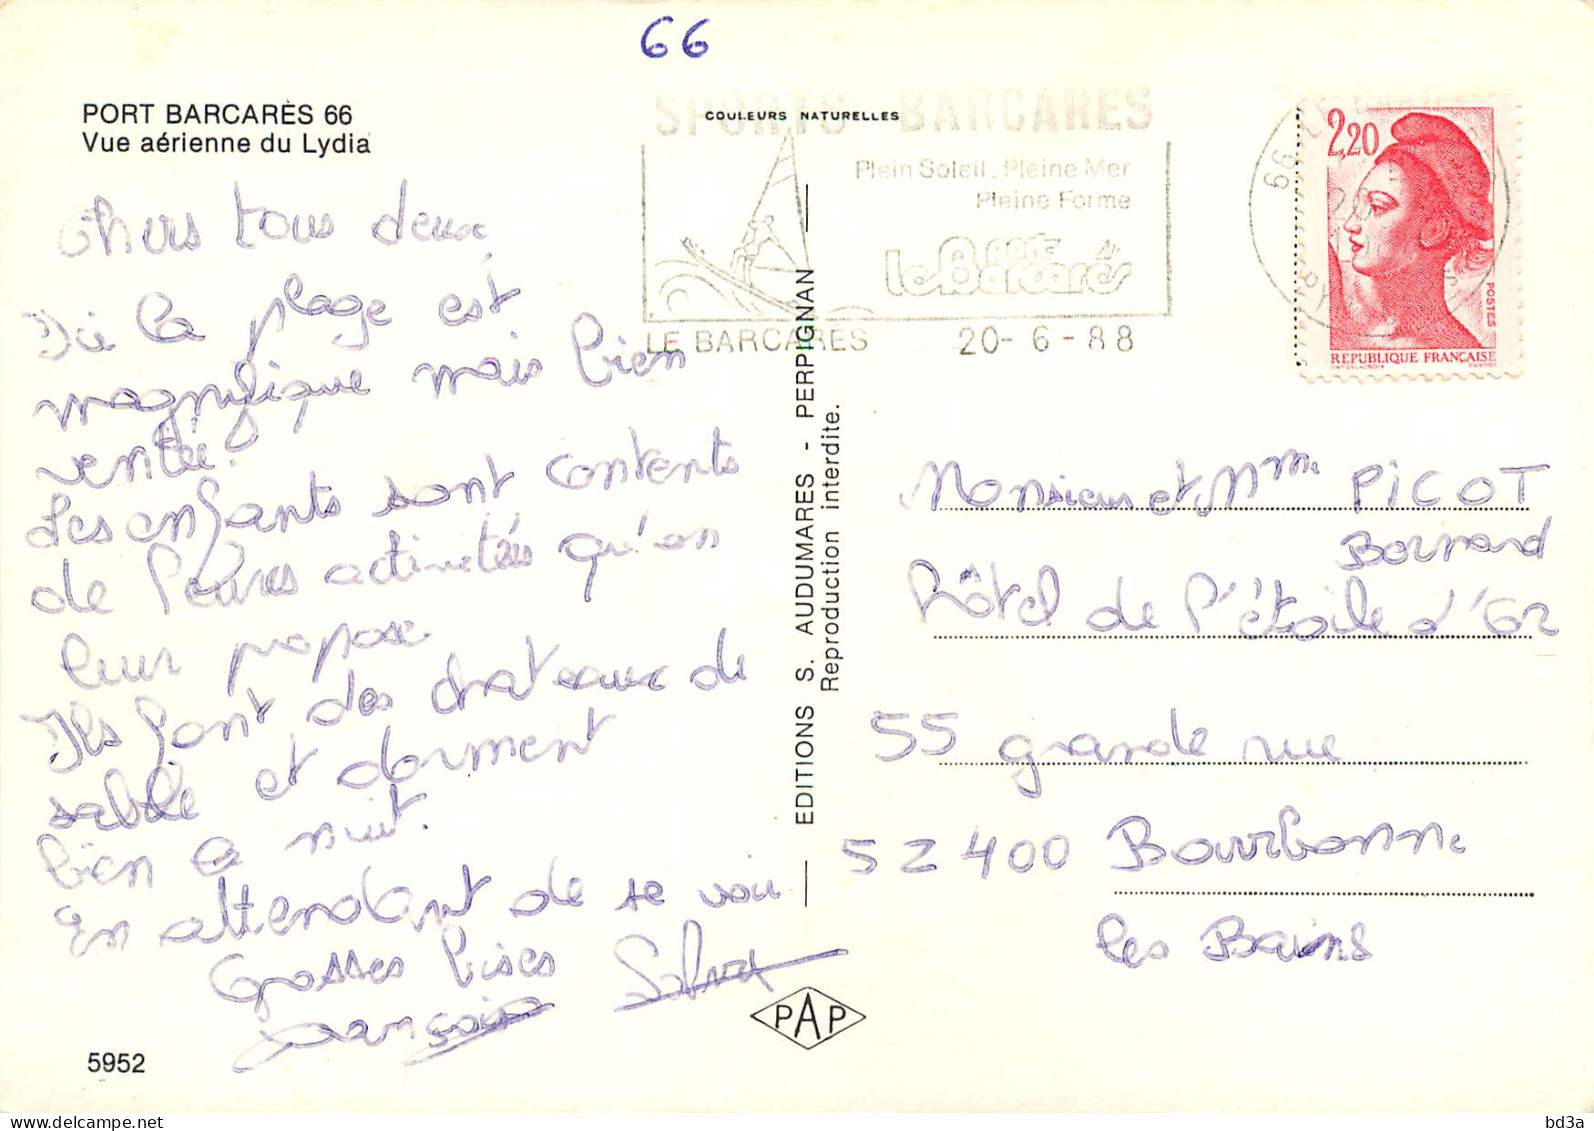 66
PORT BARCARÈS 66
Vue aérienne du Lydia
COULEURS NATURELLES
SPORTS BARCARES
Plein Soleil. Pleine Mer
Pleine Forme
port
le Barcarès
LE BARCARES 20-6-88
66
2,20
POSTES
REPUBLIQUE FRANÇAISE
Chers tous deux
Ici la plage est
magnifique mais bien
ventée.
Les enfants sont contents
de leures activitées qu'on
leur propose
Ils font des chateaux de
sable et dorment
bien la nuit.
En attendant de se voir
Grosses bises
EDITIONS S. AUDUMARES - PERPIGNAN
Reproduction interdite.
Monsieur et Mme PICOT
Bernard
hôtel de l'étoile d'Or
55 grande rue
52400 Bourbonne
les Bains
PAP
5952
bd3a